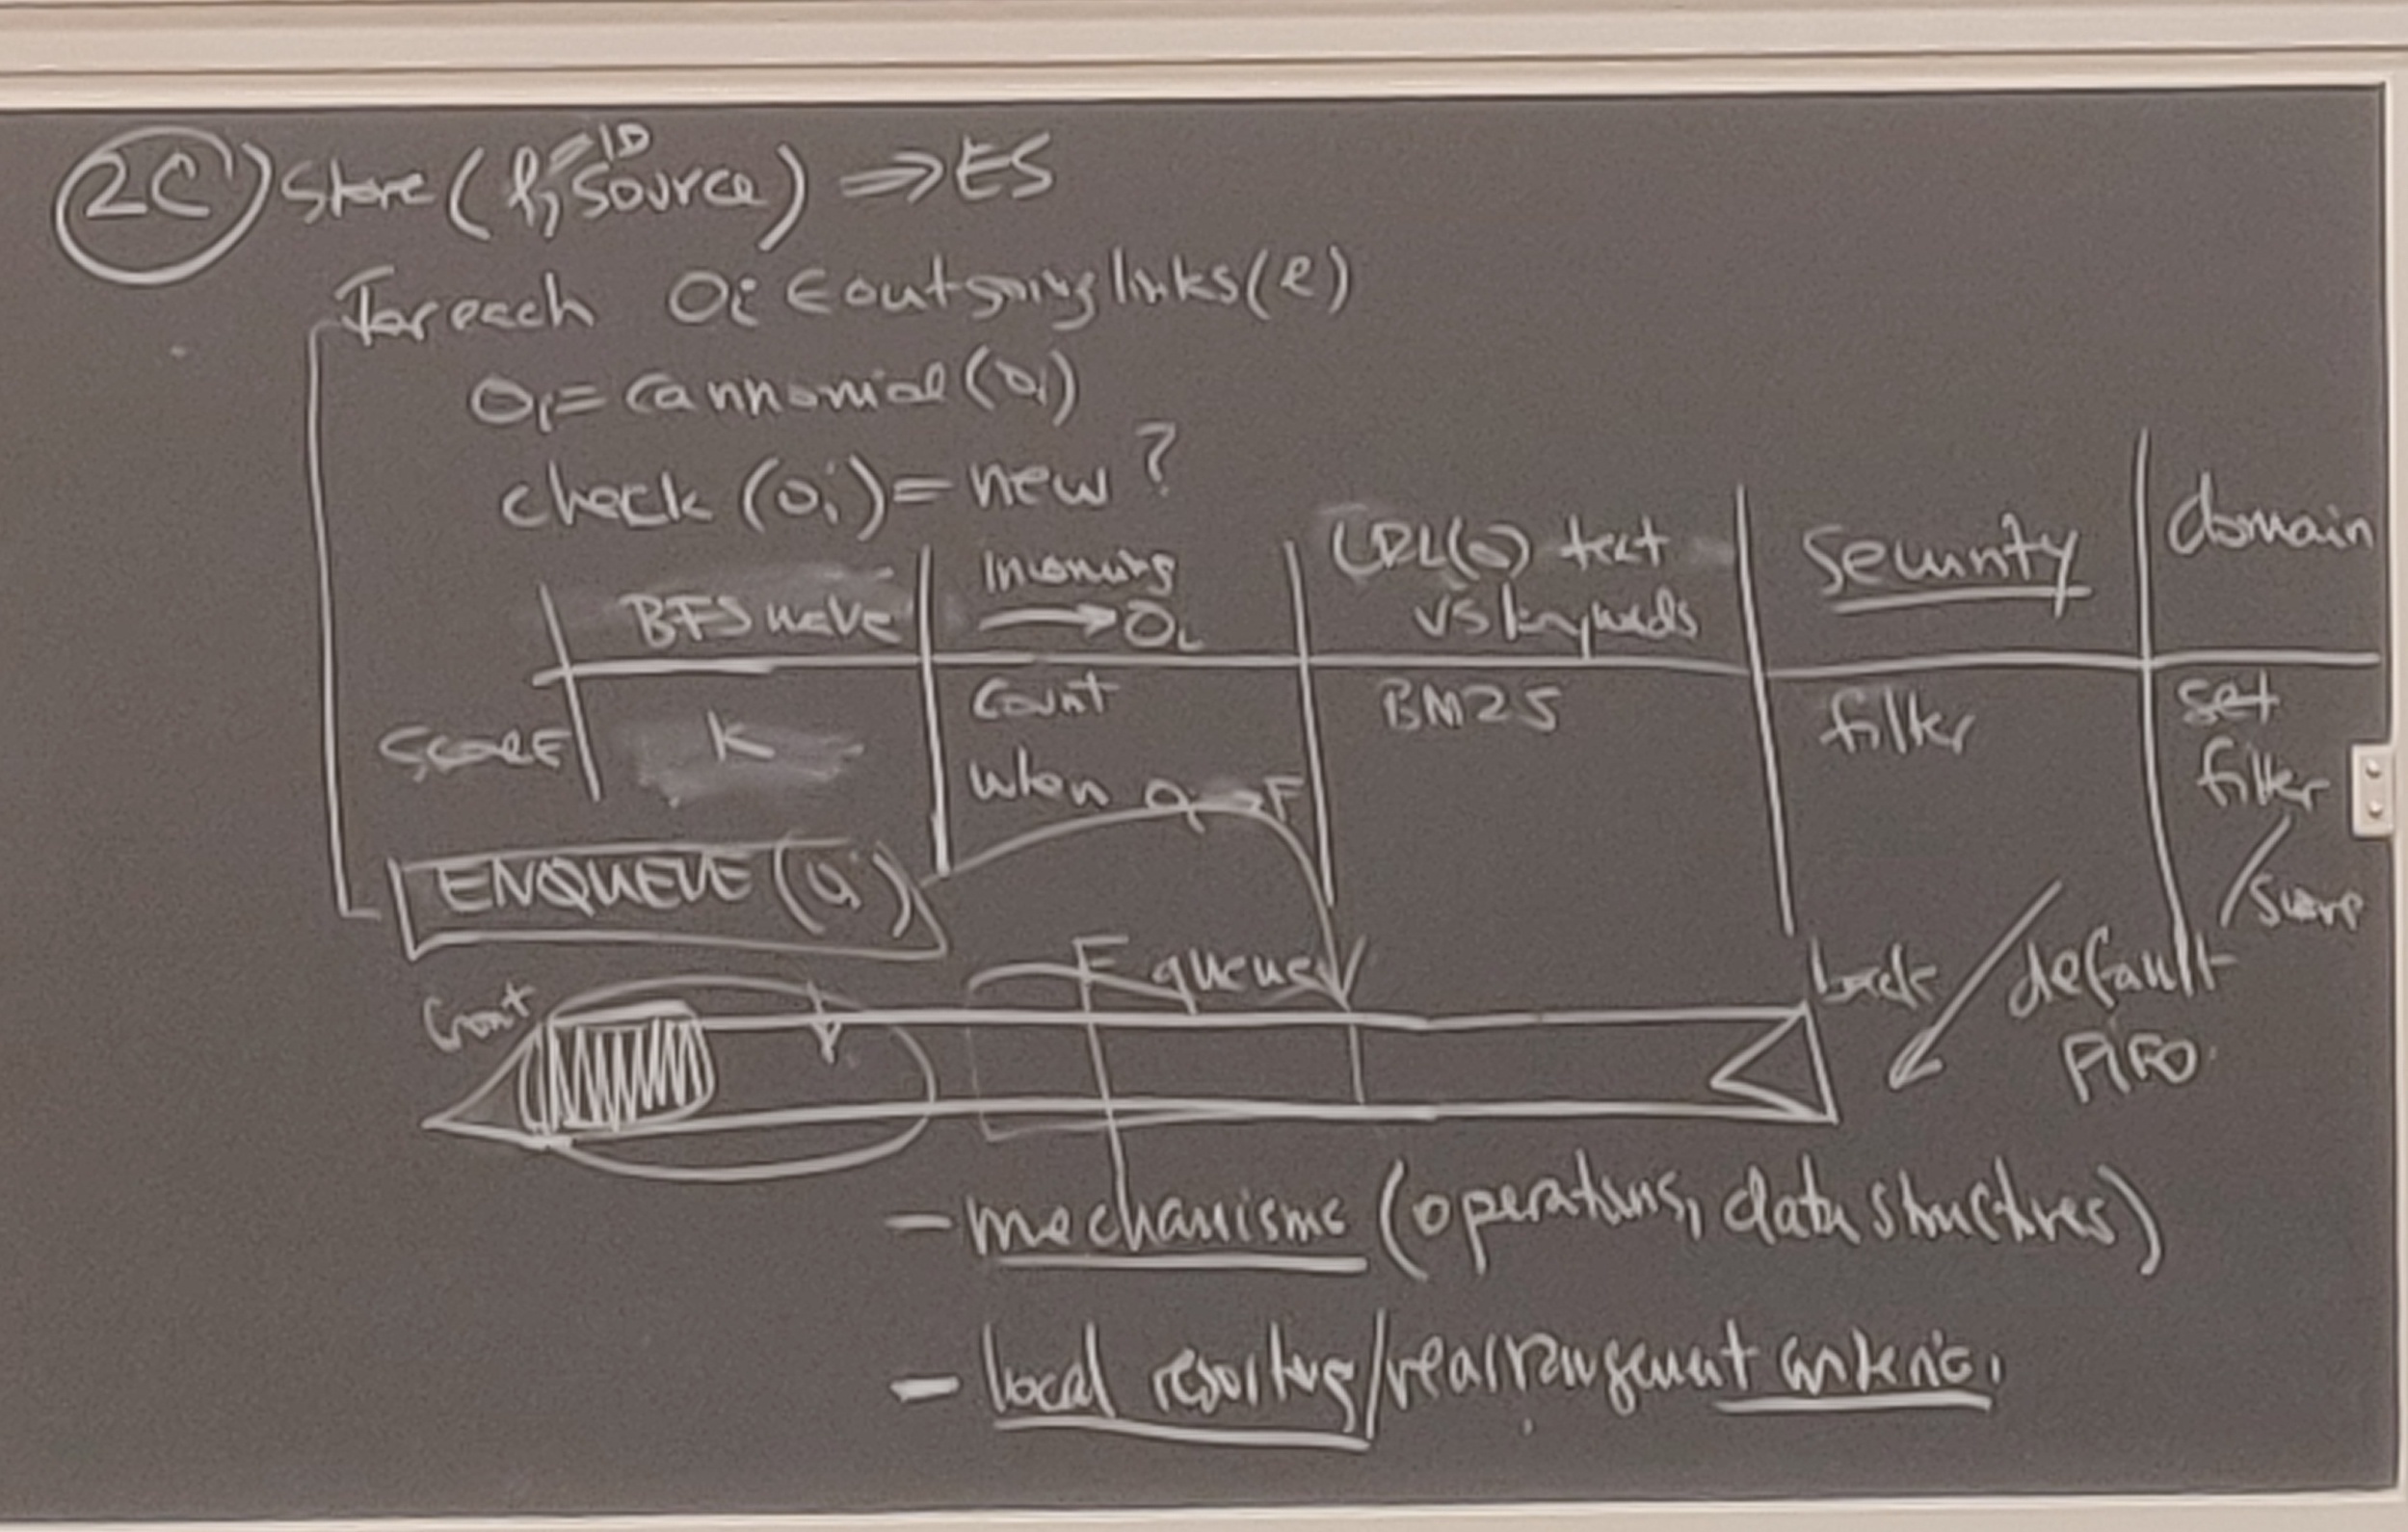 2C) Store (l, source) ⇒ ES
=ID
For each Oi ∈ outgoing links (l)
Oi = cannonical (Oi)
check (Oi) = new ?
BFS wave
Incoming → Oi
URL(o) text vs keywords
Security
domain
SCORE
K
Count when Oi → F
BM25
filter
set filter / score
ENQUEUE (Oi)
F queue
front
back
default FIFO
- mechanisms (operations, data structures)
- local resorting/rearrangement criteria.